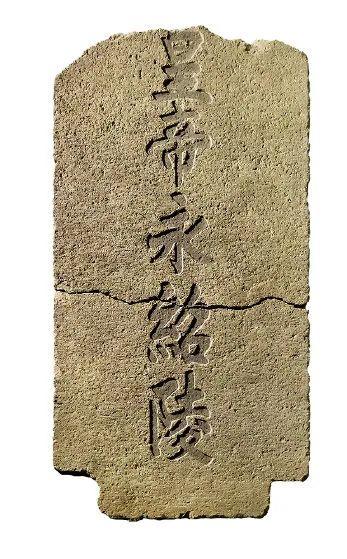 皇帝永紹陵